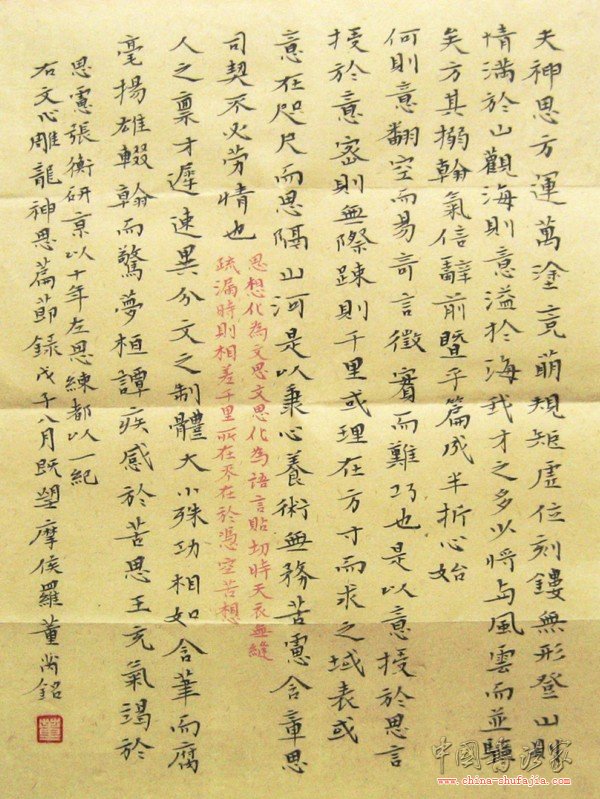 夫神思方運萬塗竞萌規矩虛位刻鏤無形登山則
情滿於山觀海則意溢於海我才之多以將与風雲而並驅
矣方其搦翰氣信辭前暨乎篇成半折心始
何則意翻空而易奇言徵實而難巧也是以意授於思言
授於意密則無際踈則千里或理在方寸而求之域表或
意在咫尺而思隔山河是以秉心養術無務苦慮含章思
司契不必勞情也
思想化為文思文思化為語言貼切時天衣無縫
疏漏時則相差千里所在不在於憑空苦想
人之禀才遲速異分文之制體大小殊功相如含筆而腐
毫揚雄輟翰而驚夢桓譚疾感於苦思王充氣竭於
思慮張衡研京以十年左思練都以一紀
右文心雕龍神思篇節錄戊子八月既望摩侯羅董尚銘
董
中國書法家
www.china-shufajia.com